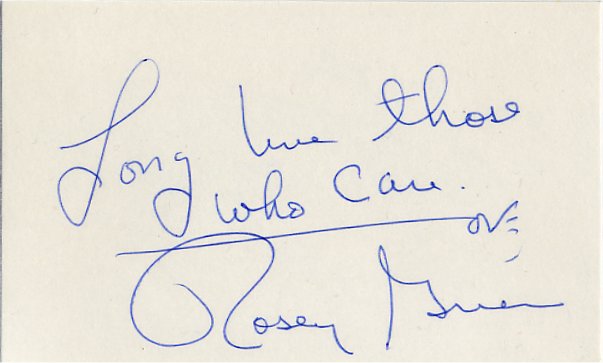 Long live those
who care.
Rosey Grier